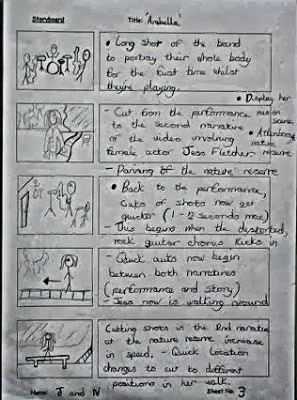 Storyboard
Title: 'Arabella'
• Long shot of the band
to portray their whole body
for the first time whilst
they're playing.
• Display her
- Cut from the performance
to the second narrative
of the video involving
female actor Jess Fletcher
scene
• Attenborough
nature
reserve
- Panning of the nature reserve
• Back to the performance,
Cuts of shots now get
quicker (1-2 seconds max)
- This begins when the distorted,
rock guitar chorus kicks in
- Quick cuts now begin
between both narratives
(performance and story)
- Jess now is walking around
Cutting shots in the 2nd narrative
at the nature reserve increase
in speed, - Quick location
changes to cut to different
positions in her walk.
Name: J and N
Sheet No: 3